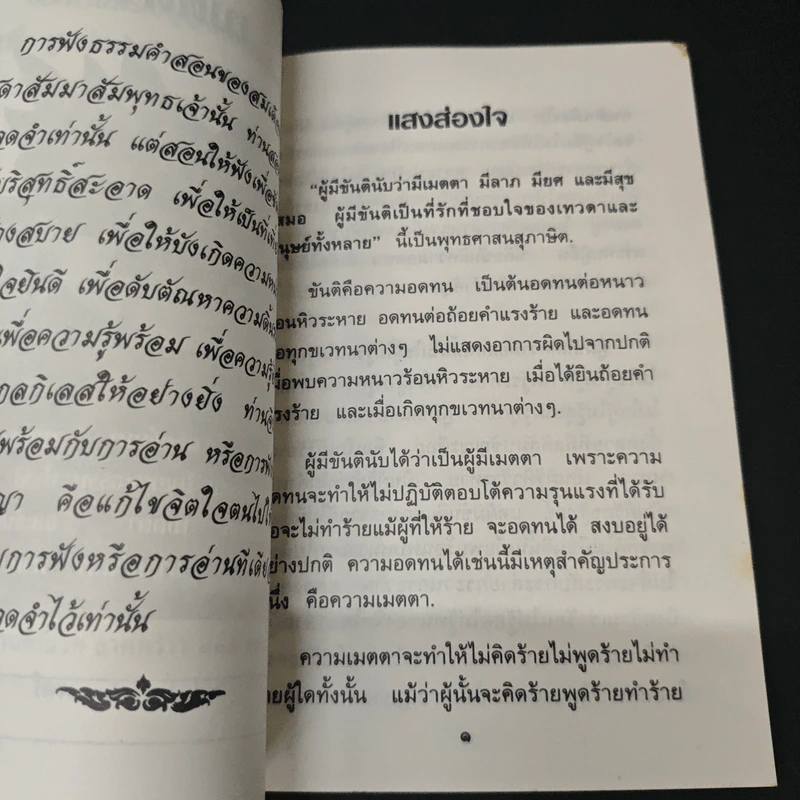 การฟังธรรมคำสอนของสมเด็จ
ดาสัมมาสัมพุทธเจ้านั้น ท่าน
ดจำเท่านั้น แต่สอนให้ฟังเพื่อ
ริสุทธิ์สะอาด เพื่อให้เป็นที่
างสบาย เพื่อให้บังเกิดความ
ใจยินดี เพื่อดับตัณหาความดิ้น
เพื่อความรู้พร้อม เพื่อความ
กลกิเลสให้อย่างยิ่ง ท่าน
พร้อมกับการอ่าน หรือการฟัง
ญา คือแก้ไขจิตใจตนไป
การฟังหรือการอ่านทีเดียว
ดจำไว้เท่านั้น
แสงส่องใจ
“ผู้มีขันตินับว่ามีเมตตา มีลาภ มียศ และมีสุข
สมอ ผู้มีขันติเป็นที่รักที่ชอบใจของเทวดาและ
นุษย์ทั้งหลาย” นี้เป็นพุทธศาสนสุภาษิต.
ขันติคือความอดทน เป็นต้นอดทนต่อหนาว
้อนหิวระหาย อดทนต่อถ้อยคำแรงร้าย และอดทน
่อทุกขเวทนาต่างๆ ไม่แสดงอาการผิดไปจากปกติ
มื่อพบความหนาวร้อนหิวระหาย เมื่อได้ยินถ้อยคำ
รงร้าย และเมื่อเกิดทุกขเวทนาต่างๆ.
ผู้มีขันตินับได้ว่าเป็นผู้มีเมตตา เพราะความ
อดทนจะทำให้ไม่ปฏิบัติตอบโต้ความรุนแรงที่ได้รับ
ือจะไม่ทำร้ายแม้ผู้ที่ให้ร้าย จะอดทนได้ สงบอยู่ได้
ย่างปกติ ความอดทนได้เช่นนี้มีเหตุสำคัญประการ
นึ่ง คือความเมตตา.
ความเมตตาจะทำให้ไม่คิดร้ายไม่พูดร้ายไม่ทำ
ายผู้ใดทั้งนั้น แม้ว่าผู้นั้นจะคิดร้ายพูดร้ายทำร้าย
๑